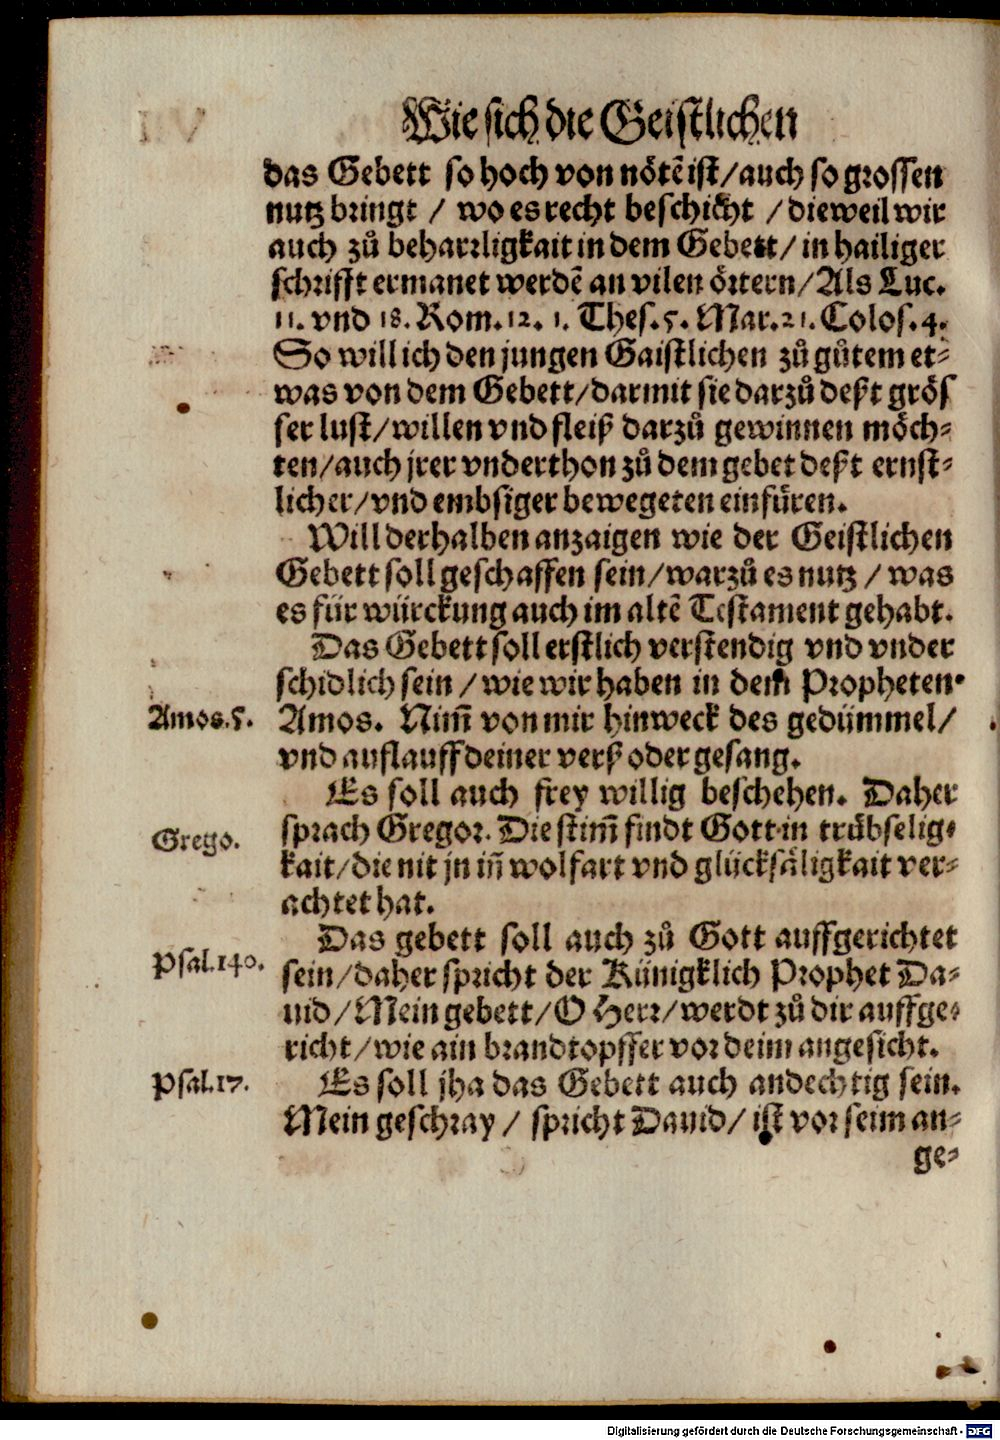 Wie sich die Geistlichen
das Gebett so hoch von nötẽ ist/auch so grossen
nutz bringt / wo es recht beschicht / dieweil wir
auch zů beharrligkait in dem Gebett/ in hailiger
schrifft ermanet werdẽ an vilen örtern/Als Luc.
11. vnd 18. Rom. 12. 1. Thes. 5. Mar. 21. Colos. 4.
So will ich den jungen Gaistlichen zů gůtem et-
was von dem Gebett/darmit sie darzů deßt grös
ser lust/willen vnd fleiß darzů gewinnen möch-
ten/auch jrer vnderthon zů dem gebet deßt ernst-
licher/vnd embsiger bewegeten einfüren.
Will derhalben anzaigen wie der Geistlichen
Gebett soll geschaffen sein/warzů es nutz / was
es für würckung auch im altẽ Testament gehabt.
Das Gebett soll erstlich verstendig vnd vnder
schidlich sein / wie wir haben in dem Propheten
Amos. 5. Amos. Nim̃ von mir hinweck des gedümmel/
vnd aufflauff deiner verß oder gesang.
Es soll auch frey willig beschehen. Daher
Grego. sprach Gregor. Die stim̃ findt Gott in trübselig-
kait/die nit jn iñ wolfart vnd glücksäligkait ver-
achtet hat.
Das gebett soll auch zů Gott auffgerichtet
Psal. 140. sein/daher spricht der Künigklich Prophet Da-
uid/Mein gebett/O Herr/werdt zů dir auffge-
richt/wie ain brandtopffer vor deim angesicht.
Psal. 17. Es soll jha das Gebett auch andechtig sein.
Mein geschray / spricht Dauid/ ist vor seim an-
ge-
Digitalisierung gefördert durch die Deutsche Forschungsgemeinschaft - DFG